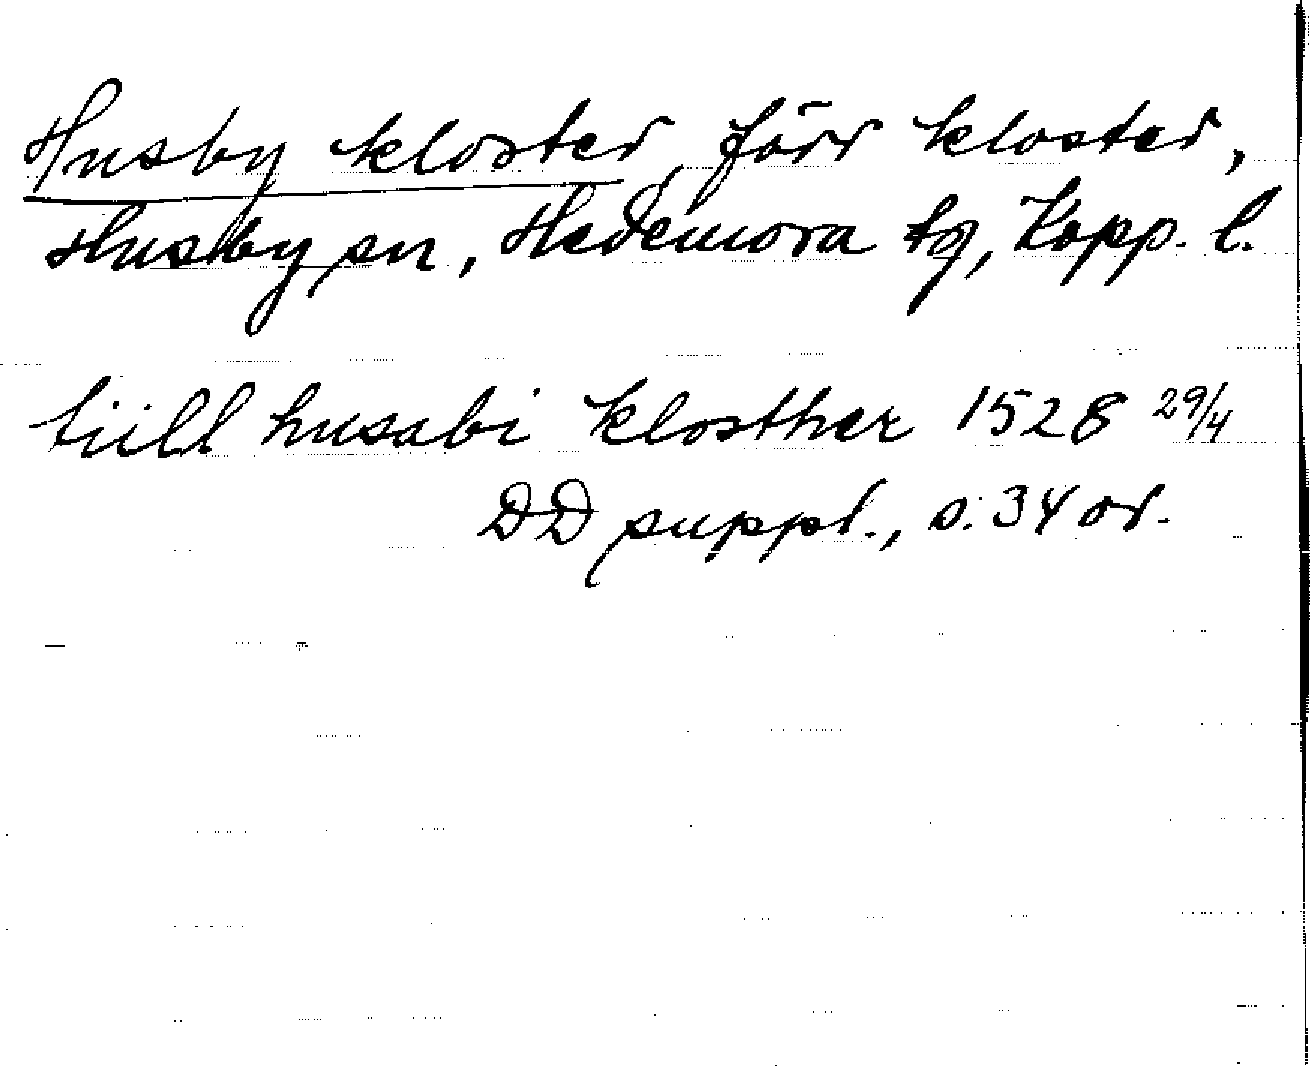 Husby kloster, förr kloster,
Husby sn, Hedemora tg, Kopp. l.
tiill husabi klosther 1528 29/4
DD suppl., s. 34 or.